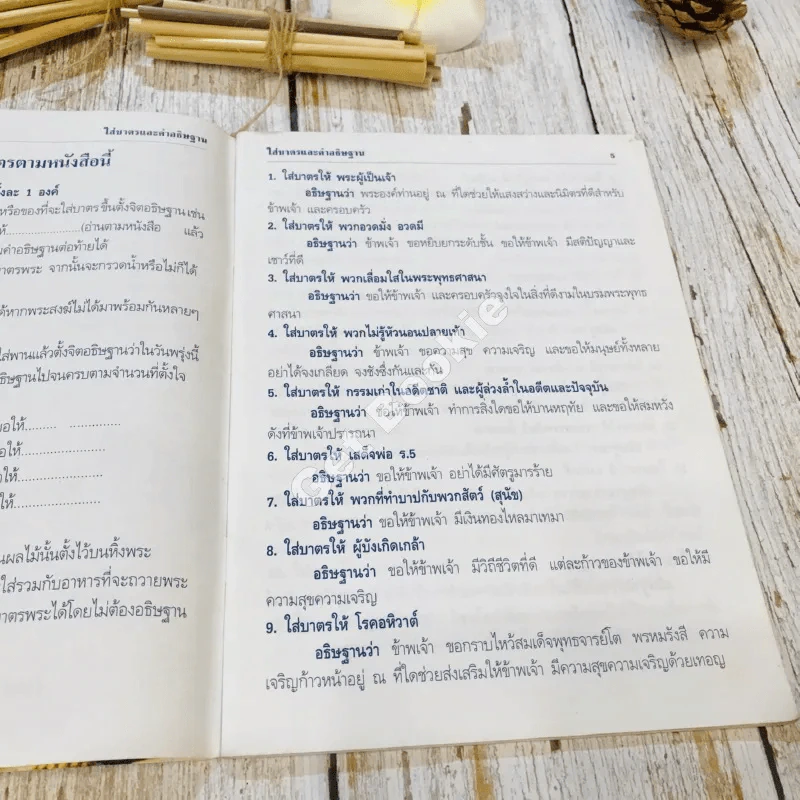 ใส่บาตรและคำอธิษฐาน
รตามหนังสือนี้
ั้งละ 1 องค์
หรือของที่จะใส่บาตรขึ้นตั้งจิตอธิษฐาน เช่น
ห้..................(อ่านตามหนังสือ แล้ว
มคำอธิษฐานต่อท้ายได้
าตรพระ จากนั้นจะกรวดน้ำหรือไม่ก็ได้
ด้หากพระสงฆ์ไม่ได้มาพร้อมกันหลายๆ
ใส่พานแล้วตั้งจิตอธิษฐานว่าในวันพรุ่งนี้
ธิษฐานไปจนครบตามจำนวนที่ตั้งใจ
ขอให้........ .............
อให้.....................
ให้.....................
ให้.....................
นผลไม้นั้นตั้งไว้บนหิ้งพระ
ใส่รวมกับอาหารที่จะถวายพระ
าตรพระได้โดยไม่ต้องอธิษฐาน
ใส่บาตรและคำอธิษฐาน 5
1. ใส่บาตรให้ พระผู้เป็นเจ้า
อธิษฐานว่า พระองค์ท่านอยู่ ณ ที่ใดช่วยให้แสงสว่างและนิมิตรที่ดีสำหรับ
ข้าพเจ้า และครอบครัว
2. ใส่บาตรให้ พวกอวดมั่ง อวดมี
อธิษฐานว่า ข้าพเจ้า ขอหยิบยกระดับชั้น ขอให้ข้าพเจ้า มีสติปัญญาและ
เชาว์ที่ดี
3. ใส่บาตรให้ พวกเลื่อมใสในพระพุทธศาสนา
อธิษฐานว่า ขอให้ข้าพเจ้า และครอบครัวจูงใจในสิ่งที่ดีงามในบรมพระพุทธ
ศาสนา
4. ใส่บาตรให้ พวกไม่รู้หัวนอนปลายเท้า
อธิษฐานว่า ข้าพเจ้า ขอความสุข ความเจริญ และขอให้มนุษย์ทั้งหลาย
อย่าได้จงเกลียด จงชังซึ่งกันและกัน
5. ใส่บาตรให้ กรรมเก่าในอดีตชาติ และผู้ล่วงล้ำในอดีตและปัจจุบัน
อธิษฐานว่า ขอให้ข้าพเจ้า ทำการสิ่งใดขอให้บานหฤทัย และขอให้สมหวัง
ดังที่ข้าพเจ้าปรารถนา
6. ใส่บาตรให้ เสด็จพ่อ ร.5
อธิษฐานว่า ขอให้ข้าพเจ้า อย่าได้มีศัตรูมารร้าย
7. ใส่บาตรให้ พวกที่ทำบาปกับพวกสัตว์ (สุนัข)
อธิษฐานว่า ขอให้ข้าพเจ้า มีเงินทองไหลมาเทมา
8. ใส่บาตรให้ ผู้บังเกิดเกล้า
อธิษฐานว่า ขอให้ข้าพเจ้า มีวิถีชีวิตที่ดี แต่ละก้าวของข้าพเจ้า ขอให้มี
ความสุขความเจริญ
9. ใส่บาตรให้ โรคอหิวาต์
อธิษฐานว่า ข้าพเจ้า ขอกราบไหว้สมเด็จพุทธจารย์โต พรหมรังสี ความ
เจริญก้าวหน้าอยู่ ณ ที่ใดช่วยส่งเสริมให้ข้าพเจ้า มีความสุขความเจริญด้วยเทอญ
Get Bookie